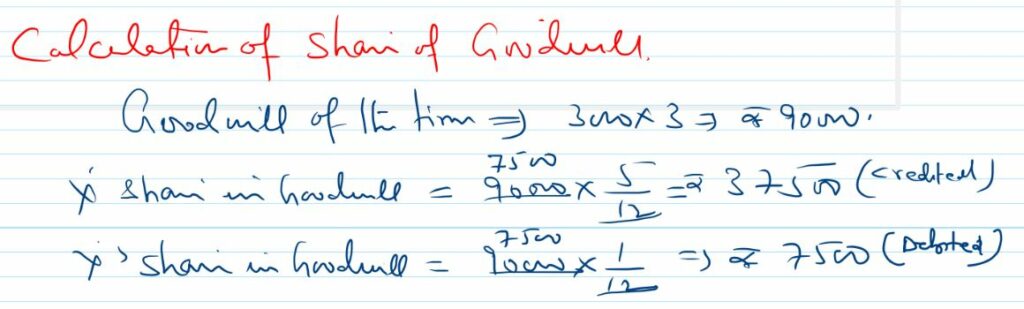 Calculation of Share of Goodwill.
Goodwill of the firm ⇒ 30000 x 3 ⇒ ₹ 90000.
X's share in Goodwill = 90000 x 5/12 ⇒ ₹ 37500 (credited)
7500
Y's share in Goodwill = 90000 x 1/12 ⇒ ₹ 7500 (Debited)
7500